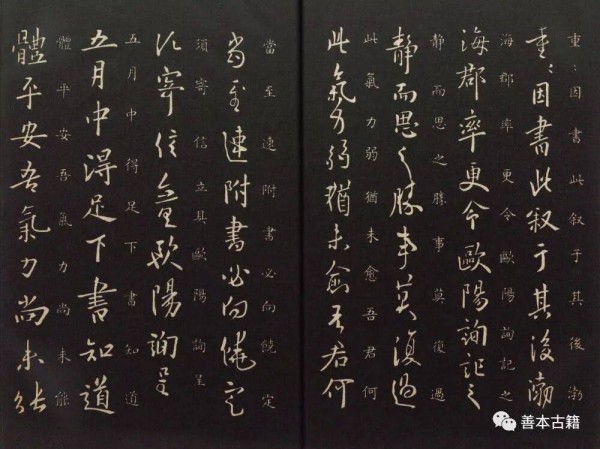 重:因書此叙子其後渤
重:因書此叙于其後渤
海郡率更令歐陽詢記之
海郡率更令歐陽詢記之
静而思之勝事莫復過
静而思之勝事莫復過
此氣力弱猶未愈吾君何
此氣力弱猶未愈吾君何
當至遠附書必向饒定
當至速附書必向饒定
須寄信立其歐陽詢呈
須寄信立具歐陽詢呈
五月中得足下書知道
五月中得足下書知道
體平安吾氣力尚未能
體平安吾氣力尚未能
善本古籍